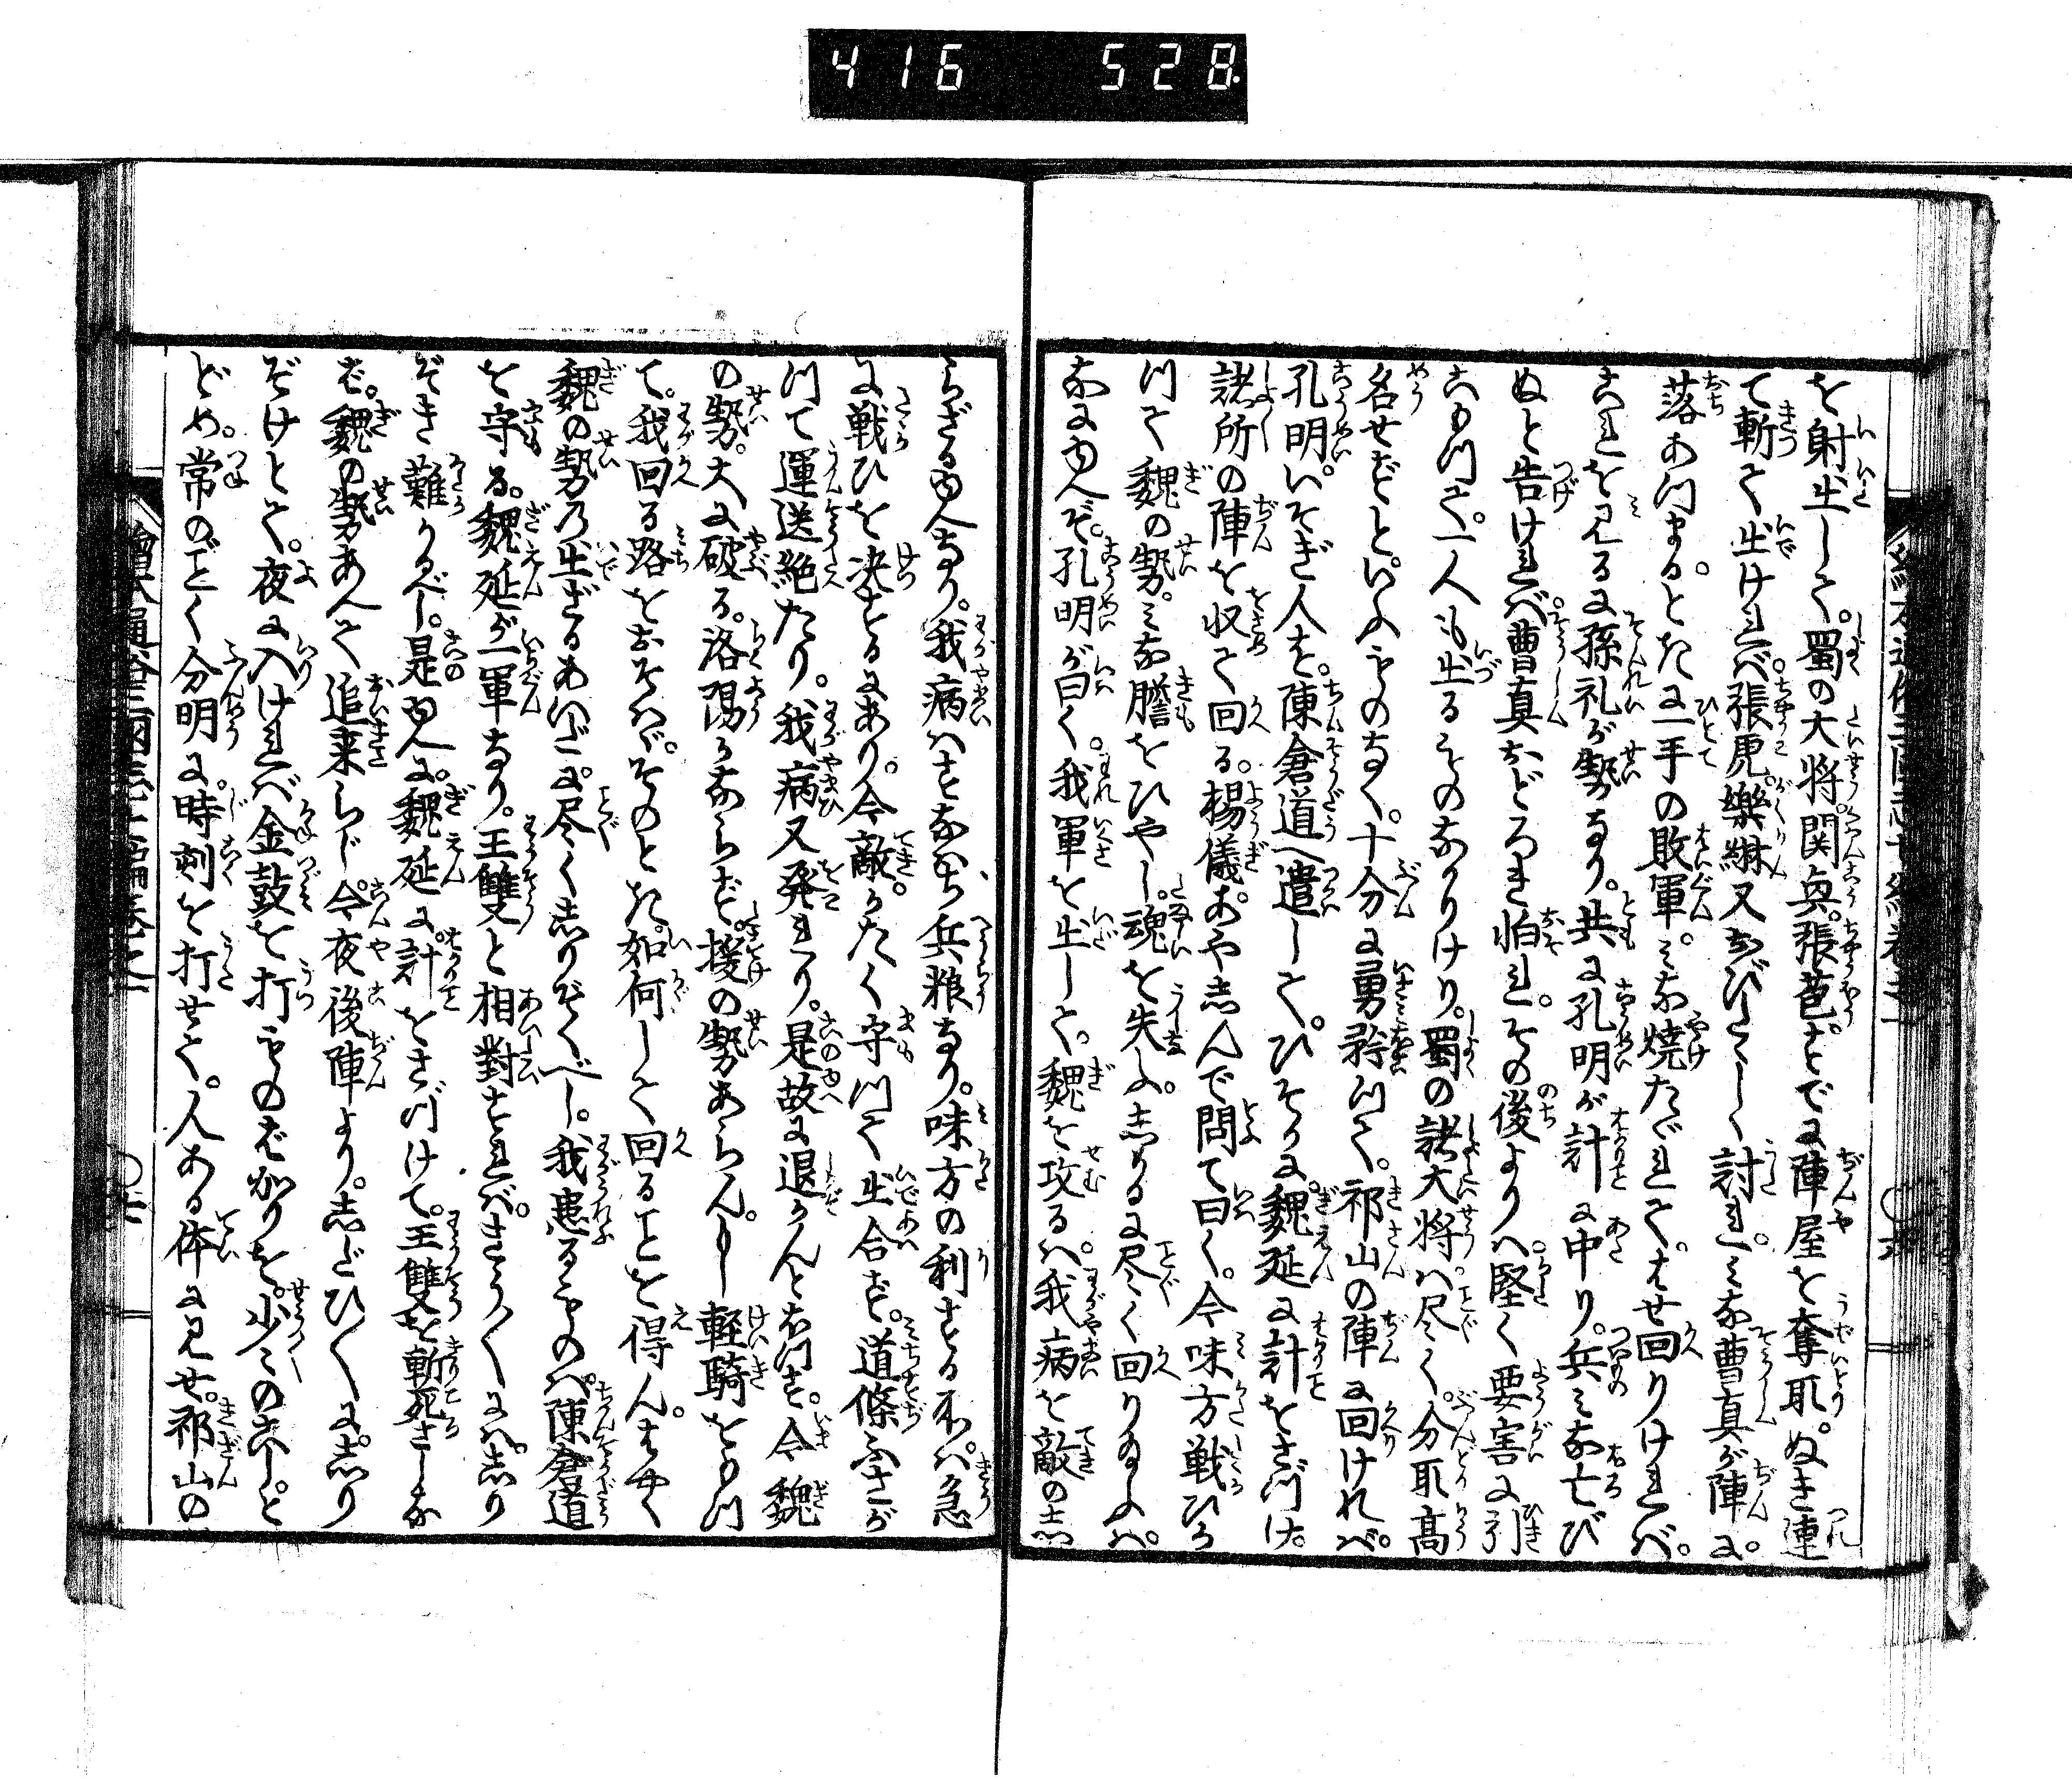 416 528
を射出して。蜀の大将。関興。張苞。すでに陣屋を奪取。ぬき連
て斬て出ければ。張虎。樂綝又おびたゞしく討れ。みな曹真が陣に。
落あつまる。とたに一手の敗軍。みな焼たゞれて。はせ回りければ。
これを見るに孫礼が勢なり。共に孔明が計に中り。兵みな亡び
ぬと告ければ。曹真おどろき怕れ。その後よりハ。堅く要害に引
こもつて。一人も出るそのなかりけり。蜀の諸大将ハ尽く。分取高
名せずといふものなく。十分に勇誇つて。祁山の陣に回ければ。
孔明。いそぎ人を。陳倉道へ遣して。ひそかに。魏延に計をさづけ。
諸所の陣を収て回る。楊儀。あやしんで問て曰く。今味方戦ひか
つて魏の勢。みな膽をひやし。魂を失ふ。しかるに尽く回り給ふハ。
なにゆへぞ。孔明が曰く。我軍を出して。魏を攻るハ。我病を敵のし
らざるゆへなり。我病ハすなわち、兵粮なり。味方の利する不ハ。急
に戦ひを決するにあり。今敵。かたく守つて出合ず。道條ふさが
つて運送絶たり。我病又発れり。是故に退かんとおもふ。今魏
の勢。大に破る。洛陽かならず。援の勢あらん。もし軽騎をもつ
て。我回る路をおそハゞ。そのとき。如何して回ることを得ん。はやく
魏の勢乃出ざるあいだに。尽くしりぞくべし。我患るものハ。陳倉道
を守る。魏延が一軍なり。王雙と相對すれバ。さう〳〵にハ。しり
ぞき難かるべし。是ゆへに。魏延に。計をさづけて。王雙を斬死さしな
ば。魏の勢あへて追来らじ。今夜後陣より。しだひ〳〵に。しり
ぞけとて。夜に入ければ金鼓を打ものばかりを。少々のこしとゞ
どめ。常のごとく分明に。時刻を打せて。人ある体に見せ。祁山の